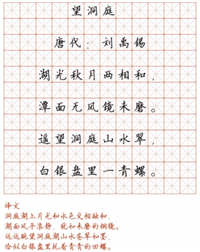 望洞庭
唐代：刘禹锡
湖光秋月两相和，
潭面无风镜未磨。
遥望洞庭山水翠，
白银盘里一青螺。
译文
洞庭湖上月光和水色交相融和，
湖面风平浪静，犹如未磨的铜镜。
远远眺望洞庭湖山水苍翠如墨，
恰似白银盘里托着青青的田螺。